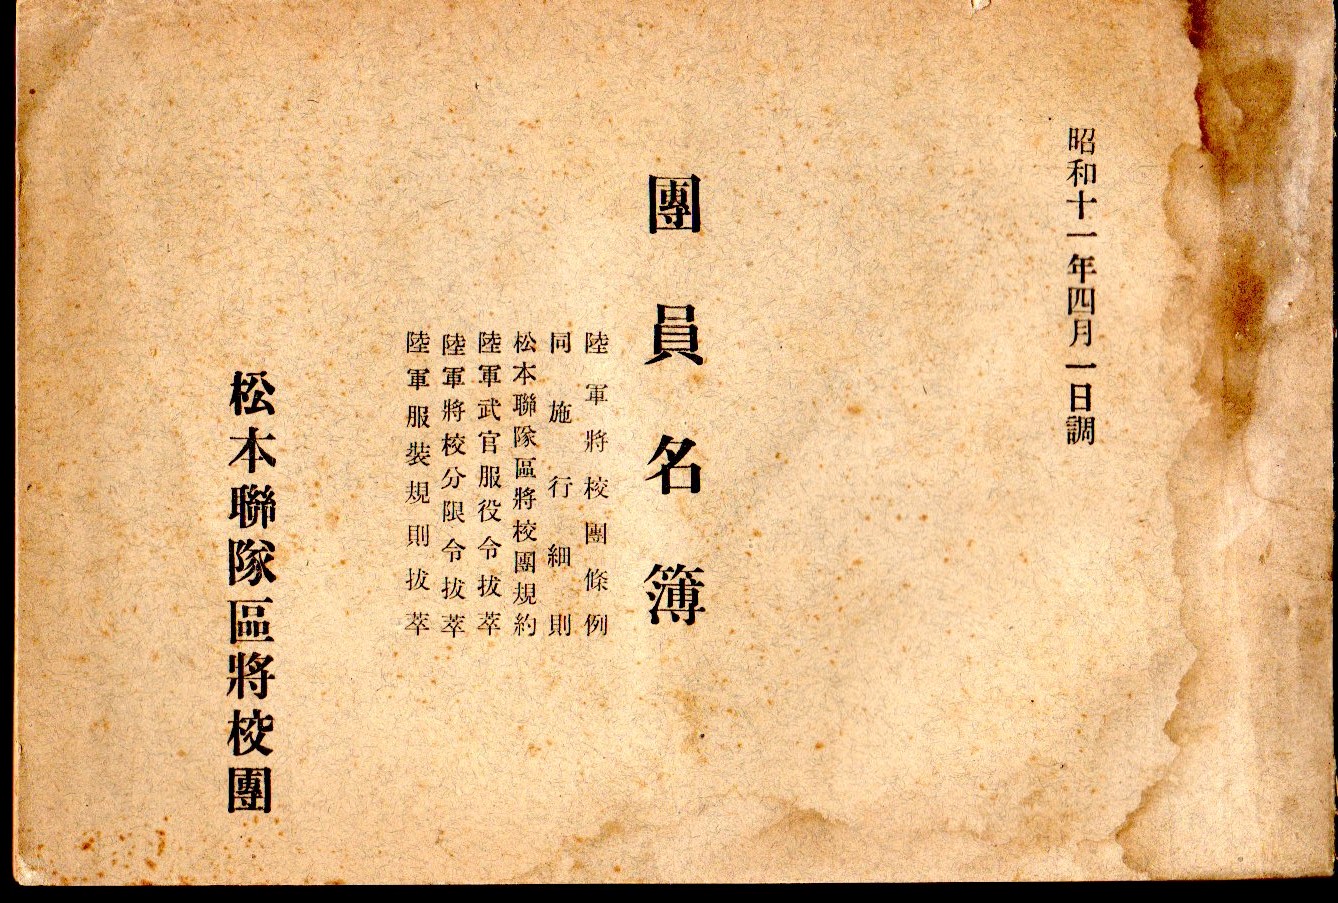 昭和十一年四月一日調
團員名簿
陸軍將校團條例
同施行細則
松本聯隊區將校團規約
陸軍武官服役令拔萃
陸軍將校分限令拔萃
陸軍服裝規則拔萃
松本聯隊區將校團